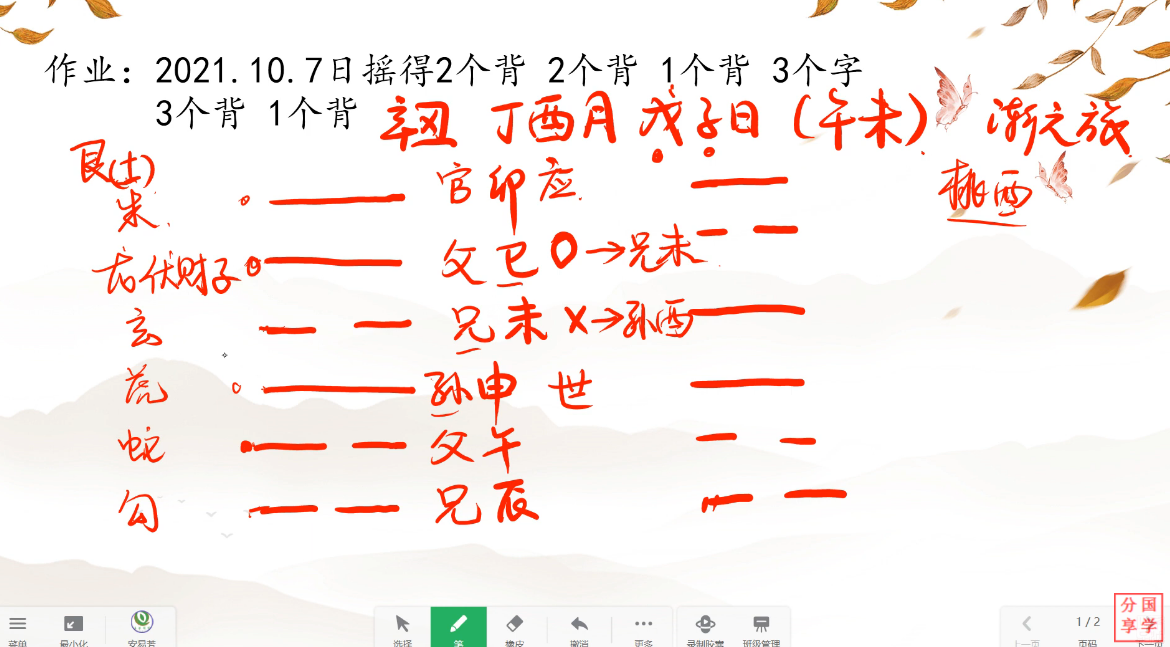 作业：2021.10.7日摇得2个背 2个背 1个背 3个字
3个背 1个背
辛丑 丁酉月 戊子日（午未） 渐之旅
艮(土)
桃酉
朱 官卯应
古伏财子 父巳O→兄未
玄 兄未X→孙酉
虎 孙申 世
蛇 父午
勾 兄辰
菜单 最小化 安易若 选择 笔 橡皮 撤消 更多 录制胶囊 班级管理 上一页 1/2 页码 下一页
分国
享学